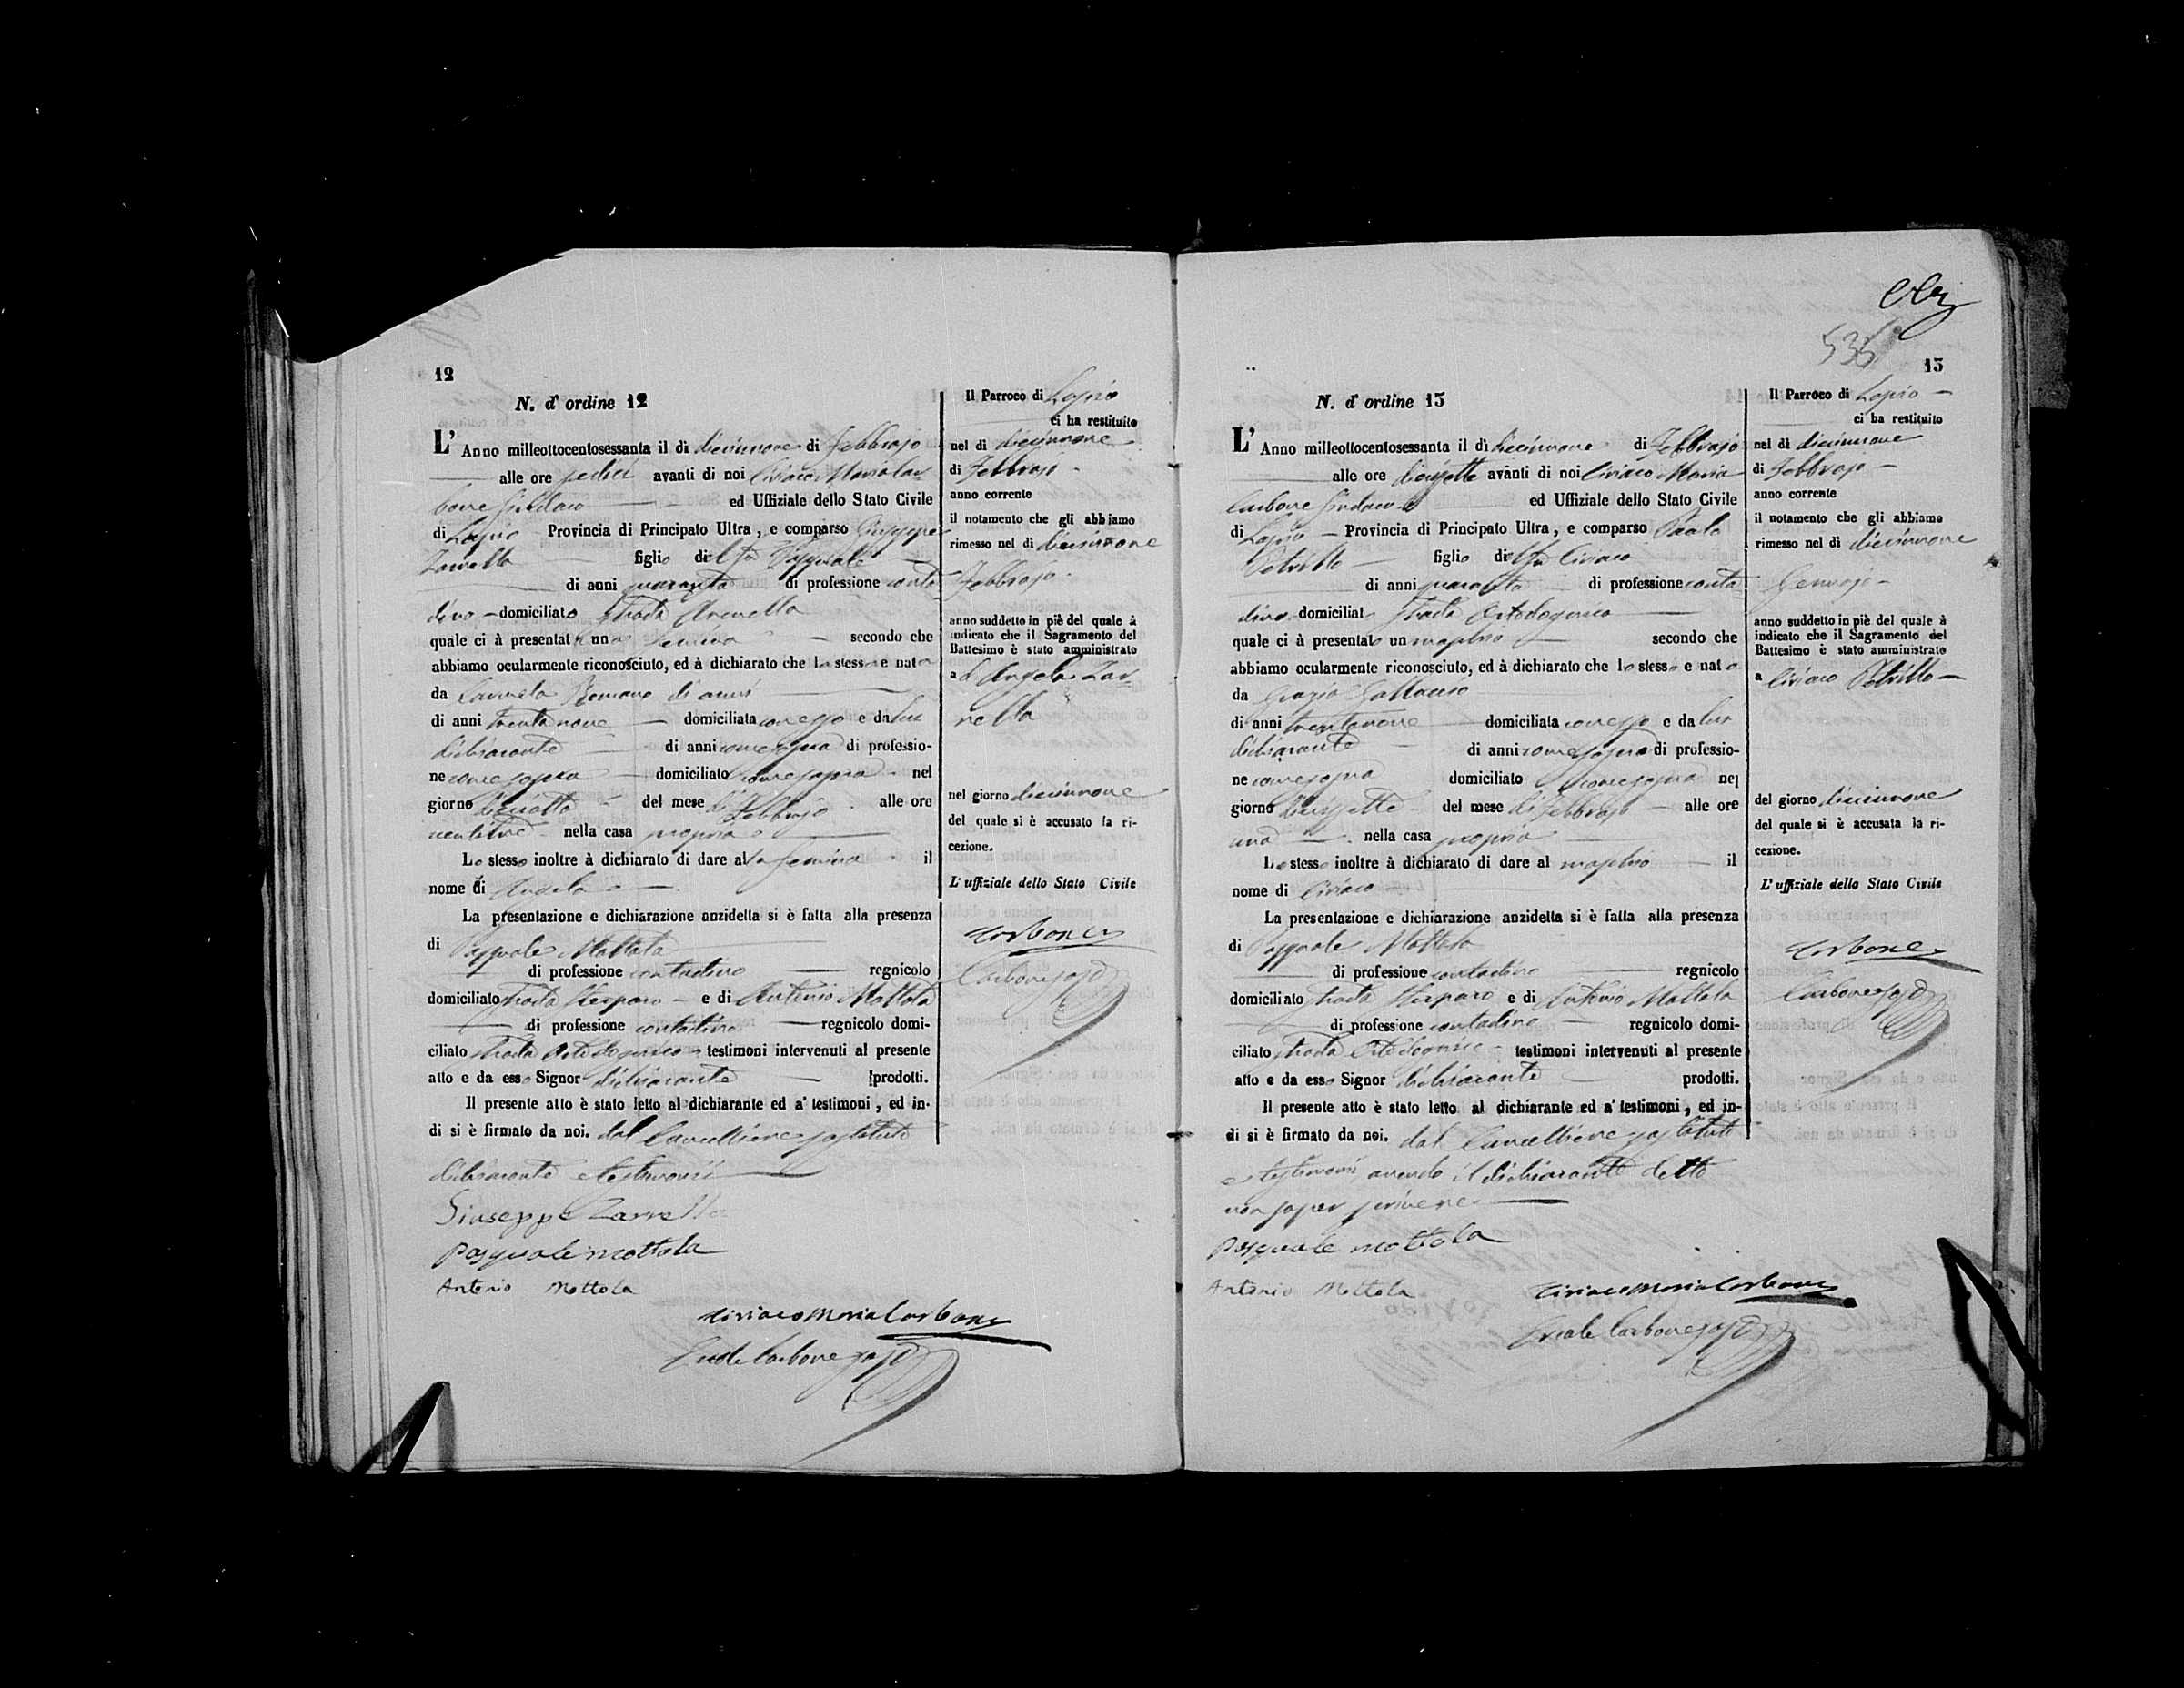 12
N. d' ordine 12
L' Anno milleottocentosessanta il dì diecinnove di Febbrajo
alle ore sedici avanti di noi Ciriaco Maria Car-
bone Sindaco ed Uffiziale dello Stato Civile
di Lapio Provincia di Principato Ultra, e comparso Giuseppe
Zarrella figlio di Pasquale
di anni quaranta di professione conta
dino domiciliato Strada
quale ci à presentat una femina secondo che
abbiamo ocularmente riconosciuto, ed à dichiarato che la stessa e nata
da Carmela Romano di anni
di anni trentanove domiciliata e da lui
dichiarante di anni come sopra di professio-
ne come sopra domiciliato come sopra nel
giorno dieciotto del mese di Febbrajo alle ore
ventitre nella casa propria
Lo stesso inoltre à dichiarato di dare alla femina il
nome di Angela
La presentazione e dichiarazione anzidetta si è fatta alla presenza
di Pasquale Mottola
di professione contadino regnicolo
domiciliato Strada e di Antonio Mottola
di professione contadino regnicolo domi-
ciliato Strada testimoni intervenuti al presente
atto e da esso Signor dichiarante prodotti.
Il presente atto è stato letto al dichiarante ed a' testimoni, ed in-
di si è firmato da noi. dal Cancelliere sostituto
dichiarante e testimoni
Giuseppe Zarrella
Pasquale mottola
Antonio Mottola
Ciriaco Maria Carbone
Carbone
Il Parroco di Lapio
ci ha restituito
nel dì diecinnove
di Febbrajo
anno corrente
il notamento che gli abbiamo
rimesso nel dì diecinnove
Febbrajo
anno suddetto in piè del quale à
indicato che il Sagramento del
Battesimo è stato amministrato
ad Angela Zar-
rella
nel giorno diecinnove
del quale si è accusato la ri-
cezione.
L' uffiziale dello Stato Civile
Carbone
Carbone
535
13
N. d' ordine 13
L' Anno milleottocentosessanta il dì diecinnove di Febbrajo
alle ore diecisette avanti di noi Ciriaco Maria
Carbone Sindaco ed Uffiziale dello Stato Civile
di Lapio Provincia di Principato Ultra, e comparso Paolo
Petrillo figlio di Ciriaco
di anni quaranta di professione conta
dino domiciliat Strada
quale ci à presentato un maschio secondo che
abbiamo ocularmente riconosciuto, ed à dichiarato che lo stesso e nato
da Grazia
di anni trentanove domiciliata e da lui
dichiarante di anni come sopra di professio-
ne come sopra domiciliato come sopra nel
giorno diecisette del mese di Febbrajo alle ore
una nella casa propria
Lo stesso inoltre à dichiarato di dare al maschio il
nome di Ciriaco
La presentazione e dichiarazione anzidetta si è fatta alla presenza
di Pasquale Mottola
di professione contadino regnicolo
domiciliato Strada e di Antonio Mottola
di professione contadino regnicolo domi-
ciliato Strada testimoni intervenuti al presente
atto e da esso Signor dichiarante prodotti.
Il presente atto è stato letto al dichiarante ed a' testimoni, ed in-
di si è firmato da noi. dal Cancelliere sostituto
e testimoni avendo il dichiarante detto
non saper scrivere
Pasquale mottola
Antonio Mottola
Ciriaco Maria Carbone
Carbone
Il Parroco di Lapio
ci ha restituito
nel dì diecinnove
di Febbrajo
anno corrente
il notamento che gli abbiamo
rimesso nel dì diecinnove
Gennajo
anno suddetto in piè del quale à
indicato che il Sagramento del
Battesimo è stato amministrato
a Ciriaco Petrillo
del giorno diecinnove
del quale si è accusata la ri-
cezione.
L' uffiziale dello Stato Civile
Carbone
Carbone